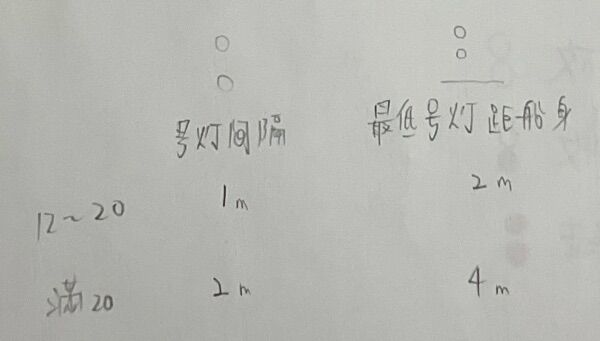 号灯间隔 最低号灯距船身
12~20 1m 2m
满20 2m 4m